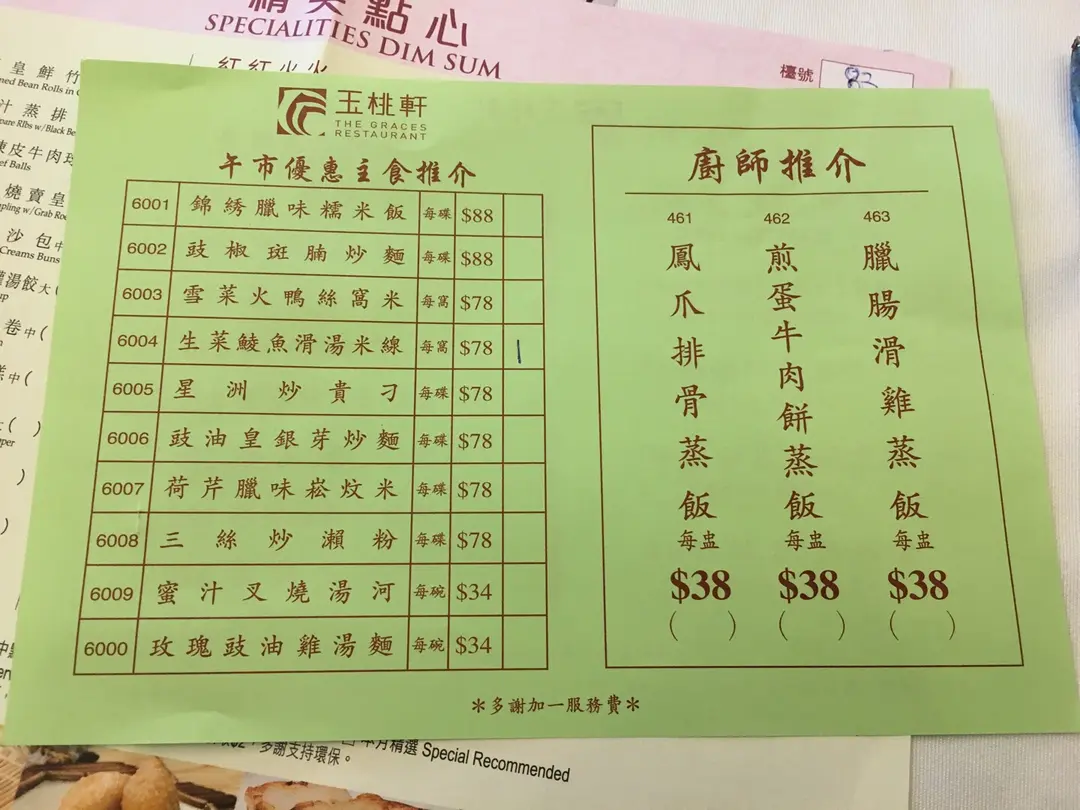 點心
SPECIALITIES DIM SUM
檯號
皇鮮竹
汁蒸排
皮牛肉球
燒賣皇
沙包中
Creams Buns
湯餃大(
卷中(
中(
玉桃軒
THE GRACES
RESTAURANT
午市優惠主食推介
6001 錦綉臘味糯米飯 每碟 $88
6002 豉椒斑腩炒麵 每碟 $88
6003 雪菜火鴨絲窩米 每窩 $78
6004 生菜鯪魚滑湯米線 每窩 $78 |
6005 星洲炒貴刁 每碟 $78
6006 豉油皇銀芽炒麵 每碟 $78
6007 荷芹臘味崧炆米 每碟 $78
6008 三絲炒瀨粉 每碟 $78
6009 蜜汁叉燒湯河 每碗 $34
6000 玫瑰豉油雞湯麵 每碗 $34
廚師推介
461
鳳爪排骨蒸飯
每盅
$38
( )
462
煎蛋牛肉餅蒸飯
每盅
$38
( )
463
臘腸滑雞蒸飯
每盅
$38
( )
*多謝加一服務費*
多謝支持環保。
本月精選 Special Recommended